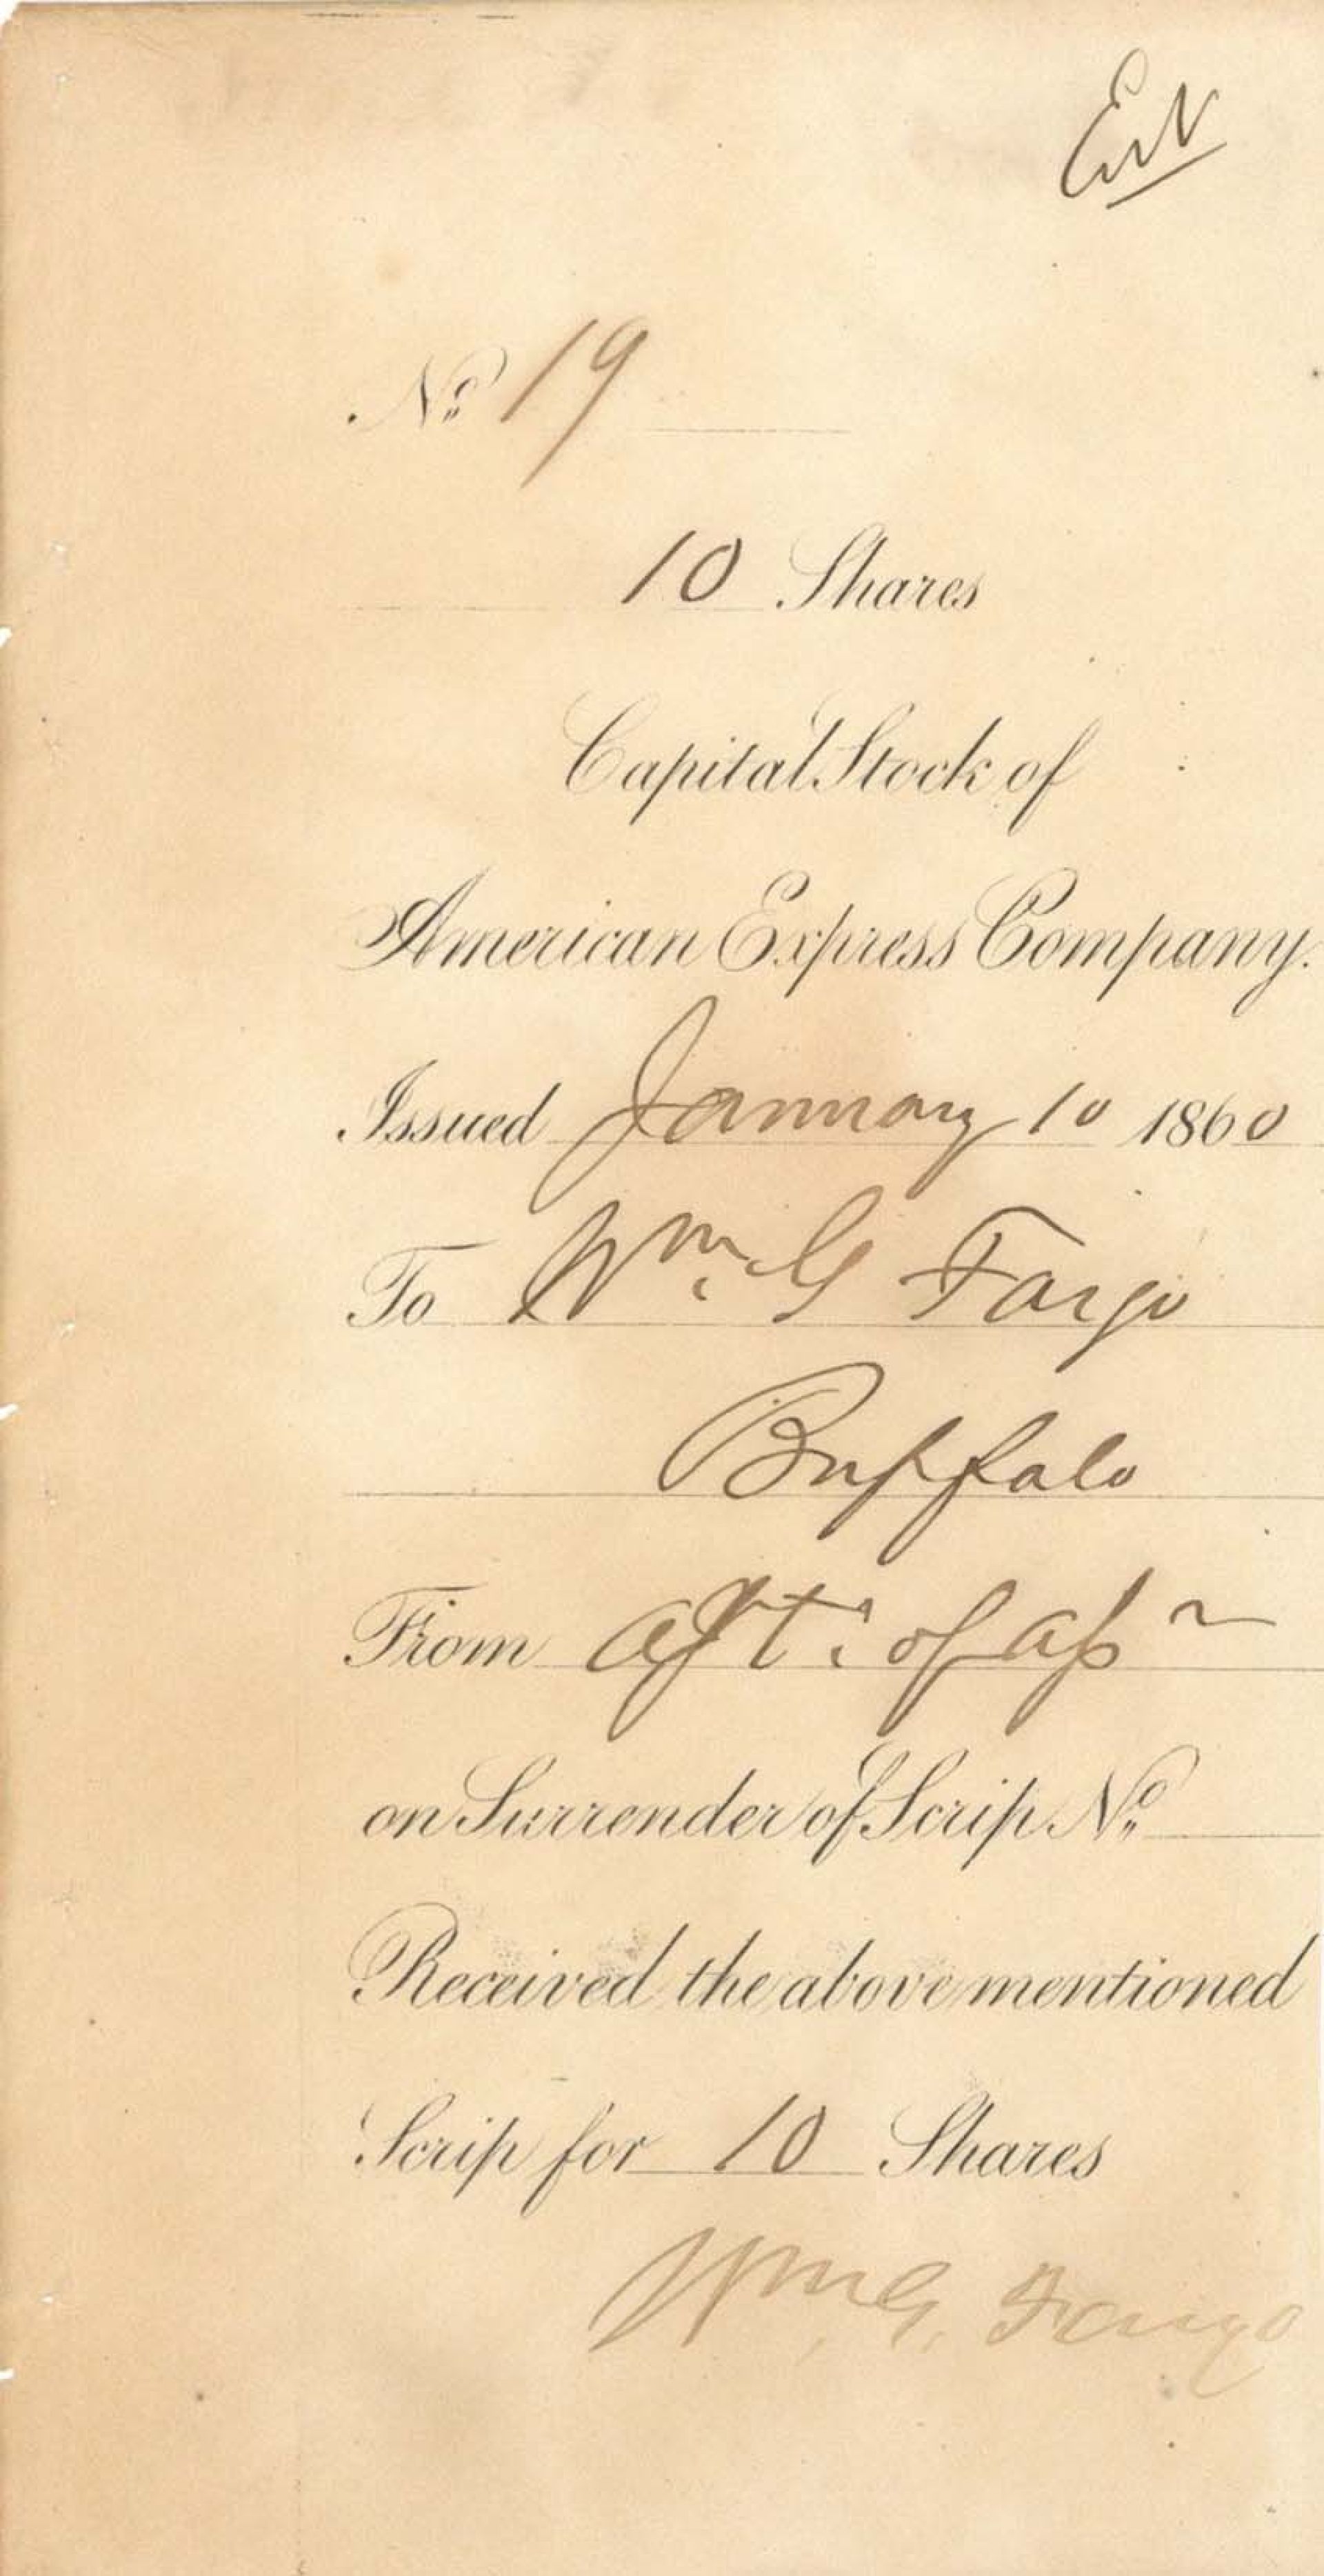 No. 19
10 Shares
Capital Stock of
American Express Company.
Issued January 10 1860
To Wm. G Fargo
Buffalo
From of
on Surrender of Scrip No.
Received the above mentioned
Scrip for 10 Shares
Wm. G. Fargo